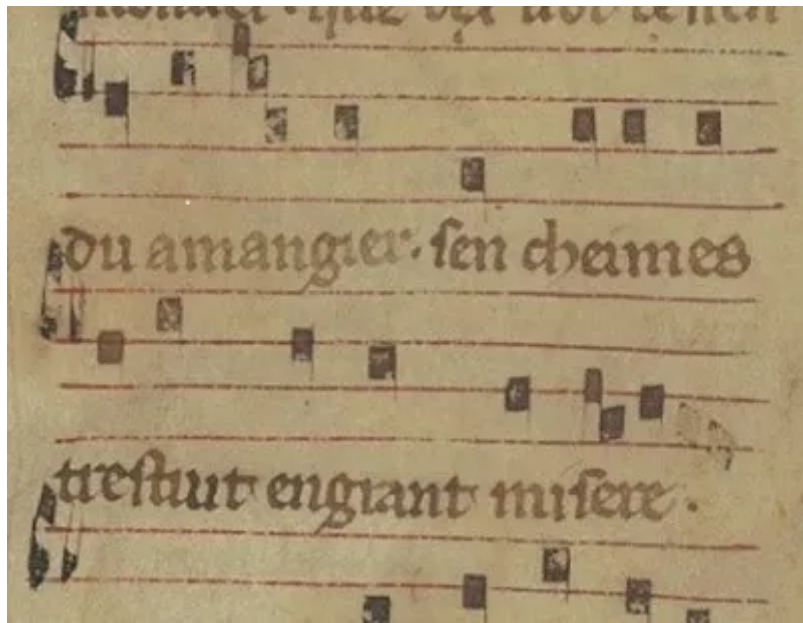 du amangier. sen cheimes
trestuit engrant misere.